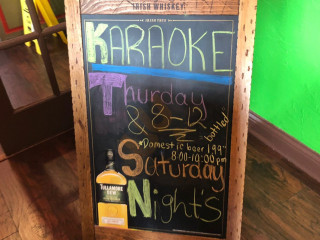 IRISH WHISKEY
KARAOKE
Thurday
& 8-12
*Domestic beer 1.99 bottled
8:00-10:00pm
Saturday
Night's
TULLAMORE
DEW